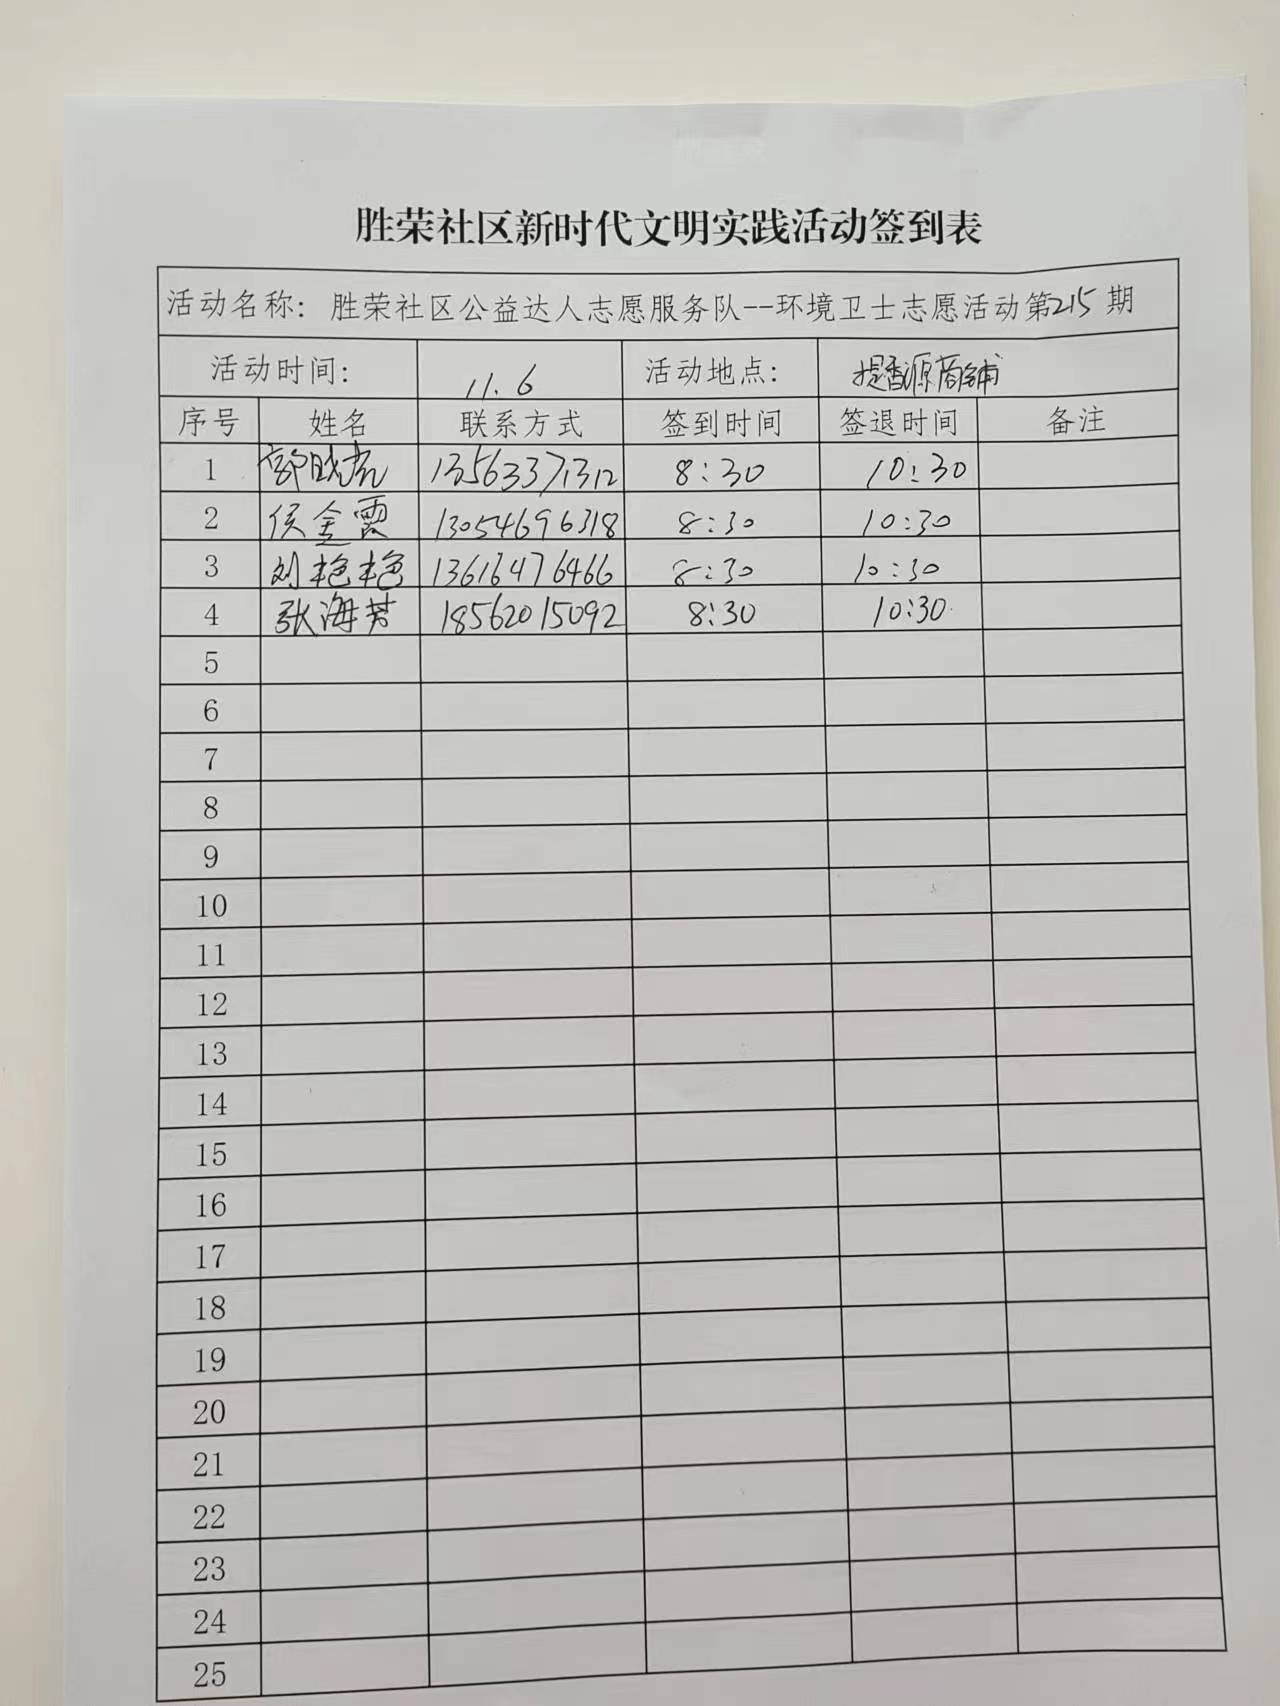 胜荣社区新时代文明实践活动签到表
活动名称：胜荣社区公益达人志愿服务队--环境卫士志愿活动第215期
活动时间： 11.6 活动地点： 提香源商铺
序号 姓名 联系方式 签到时间 签退时间 备注
1 13563371312 8:30 10:30
2 侯金霞 13054696318 8:30 10:30
3 刘艳艳 13616476466 8:30 10:30
4 张海芳 18562015092 8:30 10:30
5
6
7
8
9
10
11
12
13
14
15
16
17
18
19
20
21
22
23
24
25